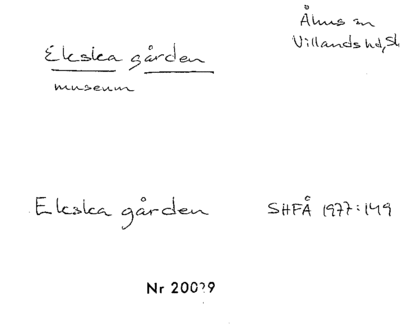 Åhus sn
Villands hd, Sk
Ekska gården
museum
Ekska gården SHFÅ 1977:149
Nr 20029